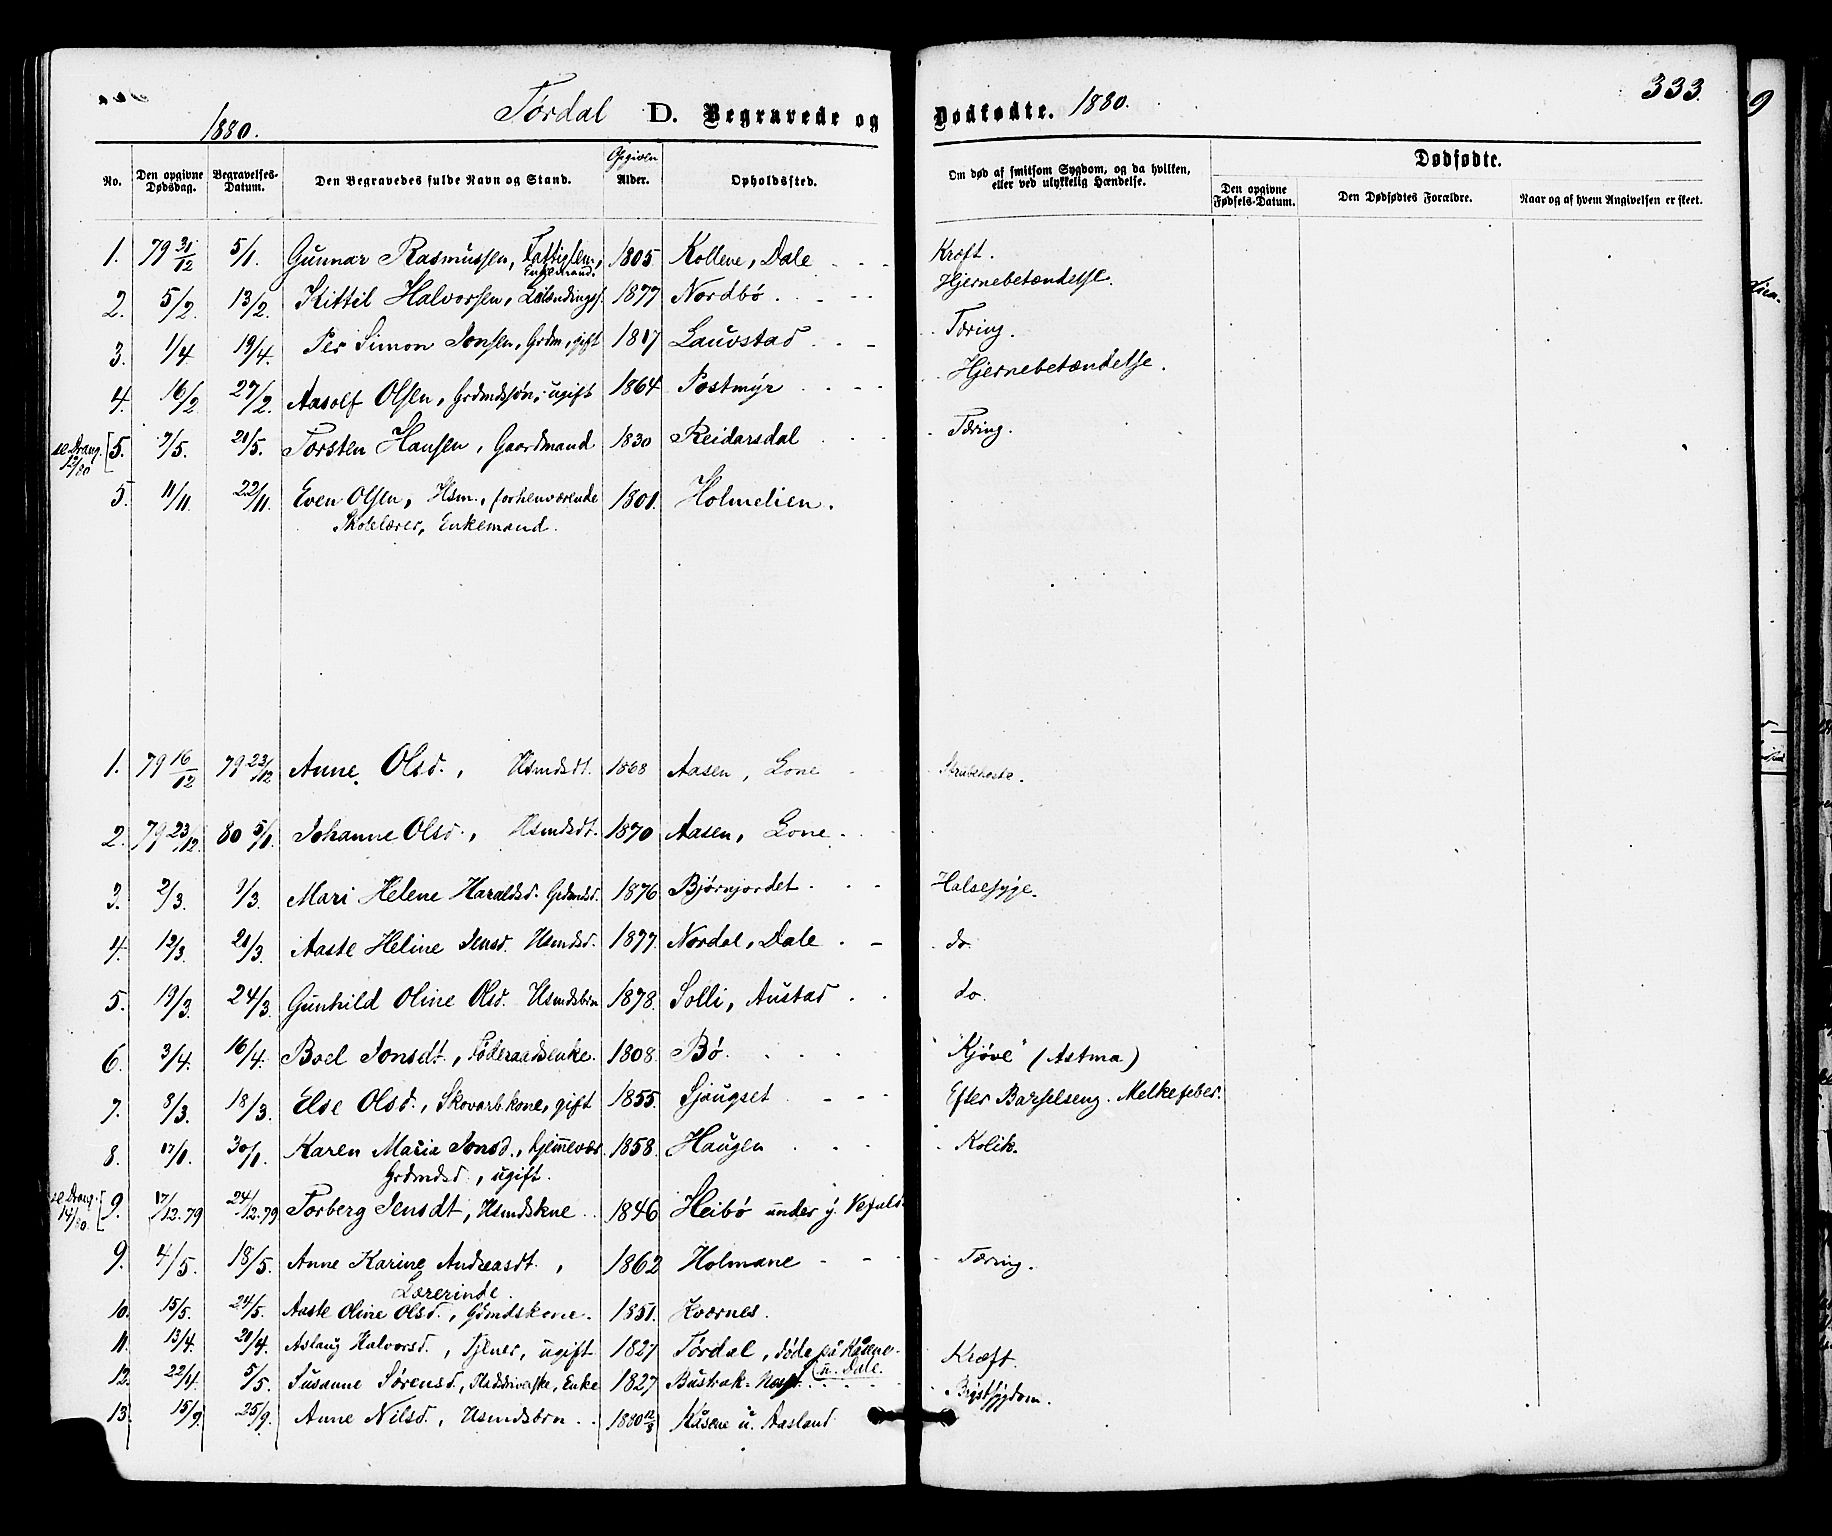 1880. Tørdal D. Begravede og Dødfødte. 1880. 333.
No. | Den opgivne Dødsdag. | Begravelses-Datum. | Den Begravedes fulde Navn og Stand. | Opgiven Alder. | Opholdssted. | Om død af smitsom Sygdom, og da hvilken, eller ved ulykkelig Hændelse. | Dødfødte. | Den opgivne Fødsels-Datum. | Den Dødfødtes Forældre. | Naar og af hvem Angivelsen er skeet.
1. 79 31/12 5/1. Gunnar Rasmussen, Fattiglem, Enkemand. 1805 Kollene, Dale Kræft.
2. 5/2. 13/2. Kittil Halvorsen, 1877 Nordbø. Hjernebetændelse.
3. 1/4 19/4. Per Simon Jonsen, Grdm, gift 1817 Lauvstad Tæring.
4. 16/2 27/2. Aasolf Olsen, Grdmdssøn, ugift 1864 Postmyr Hjernebetændelse.
se Drang. 12/80 [5. 7/5. 21/5. Torsten Hansen, Gaardmand 1830 Reidarsdal Tæring.
5. 11/11. 22/11. Even Olsen, Hsm., forhenværende 1801. Holmelien.
Skolelærer, Enkemand.
1. 79 16/12 79 23/12 Anne Olsd., Hsmdsdt. 1868 Aasen, Lone Strubehoste.
2. 79 23/12. 80 5/1. Johanne Olsd., Hsmdsdt. 1870 Aasen, Lone.
3. 2/3. 9/3. Mari Helene Haraldsd. Grdmdsd. 1876 Bjørnjordet Halsesyge.
4. 12/3. 21/3. Aaste Heline Jensd. Hsmdsd. 1877. Nordal, Dale do.
5. 19/3. 24/3. Gunhild Oline Olsd. Hsmdsbrn 1878. Solli, Austad do.
6. 3/4. 16/4. Boel Jonsdt., Føderaadsenke. 1808. Bø. "Kjøve" (Astma)
7. 8/3. 18/3. Else Olsd., Skovarb.kone, gift 1855. Sjaugset Efter Barselseng. Melkefeber.
8. 17/1. 30/1. Karen Maria Jonsd., hjemmevær. 1858. Haugen Kolik.
Grdmdsd., ugift.
se Drang. 14/80 [9. 17/12.79 24/12.79 Torberg Jensdt, Hsmdskne 1846 Heibø under y.
9. 4/5. 18/5. Anne Karine Andreasdt., 1862 Holmane Tæring.
Lærerinde.
10. 15/5. 24/5. Aaste Oline Olsd., Gdmdskone. 1851. Kværnes.
11. 13/4. 21/4. Aslaug Halvorsd., Tjener, ugift 1827 Tørdal, døde på Kåsene u. Dale. Kræft.
12. 22/4 5/5. Susanne Sørensd., Enke 1827 Bustrak-Næset. Brystsygdom.
13. 15/9. 25/9. Anne Nilsd., Hsmdsbrn 1880 12/8 Kåsene u. Aasland